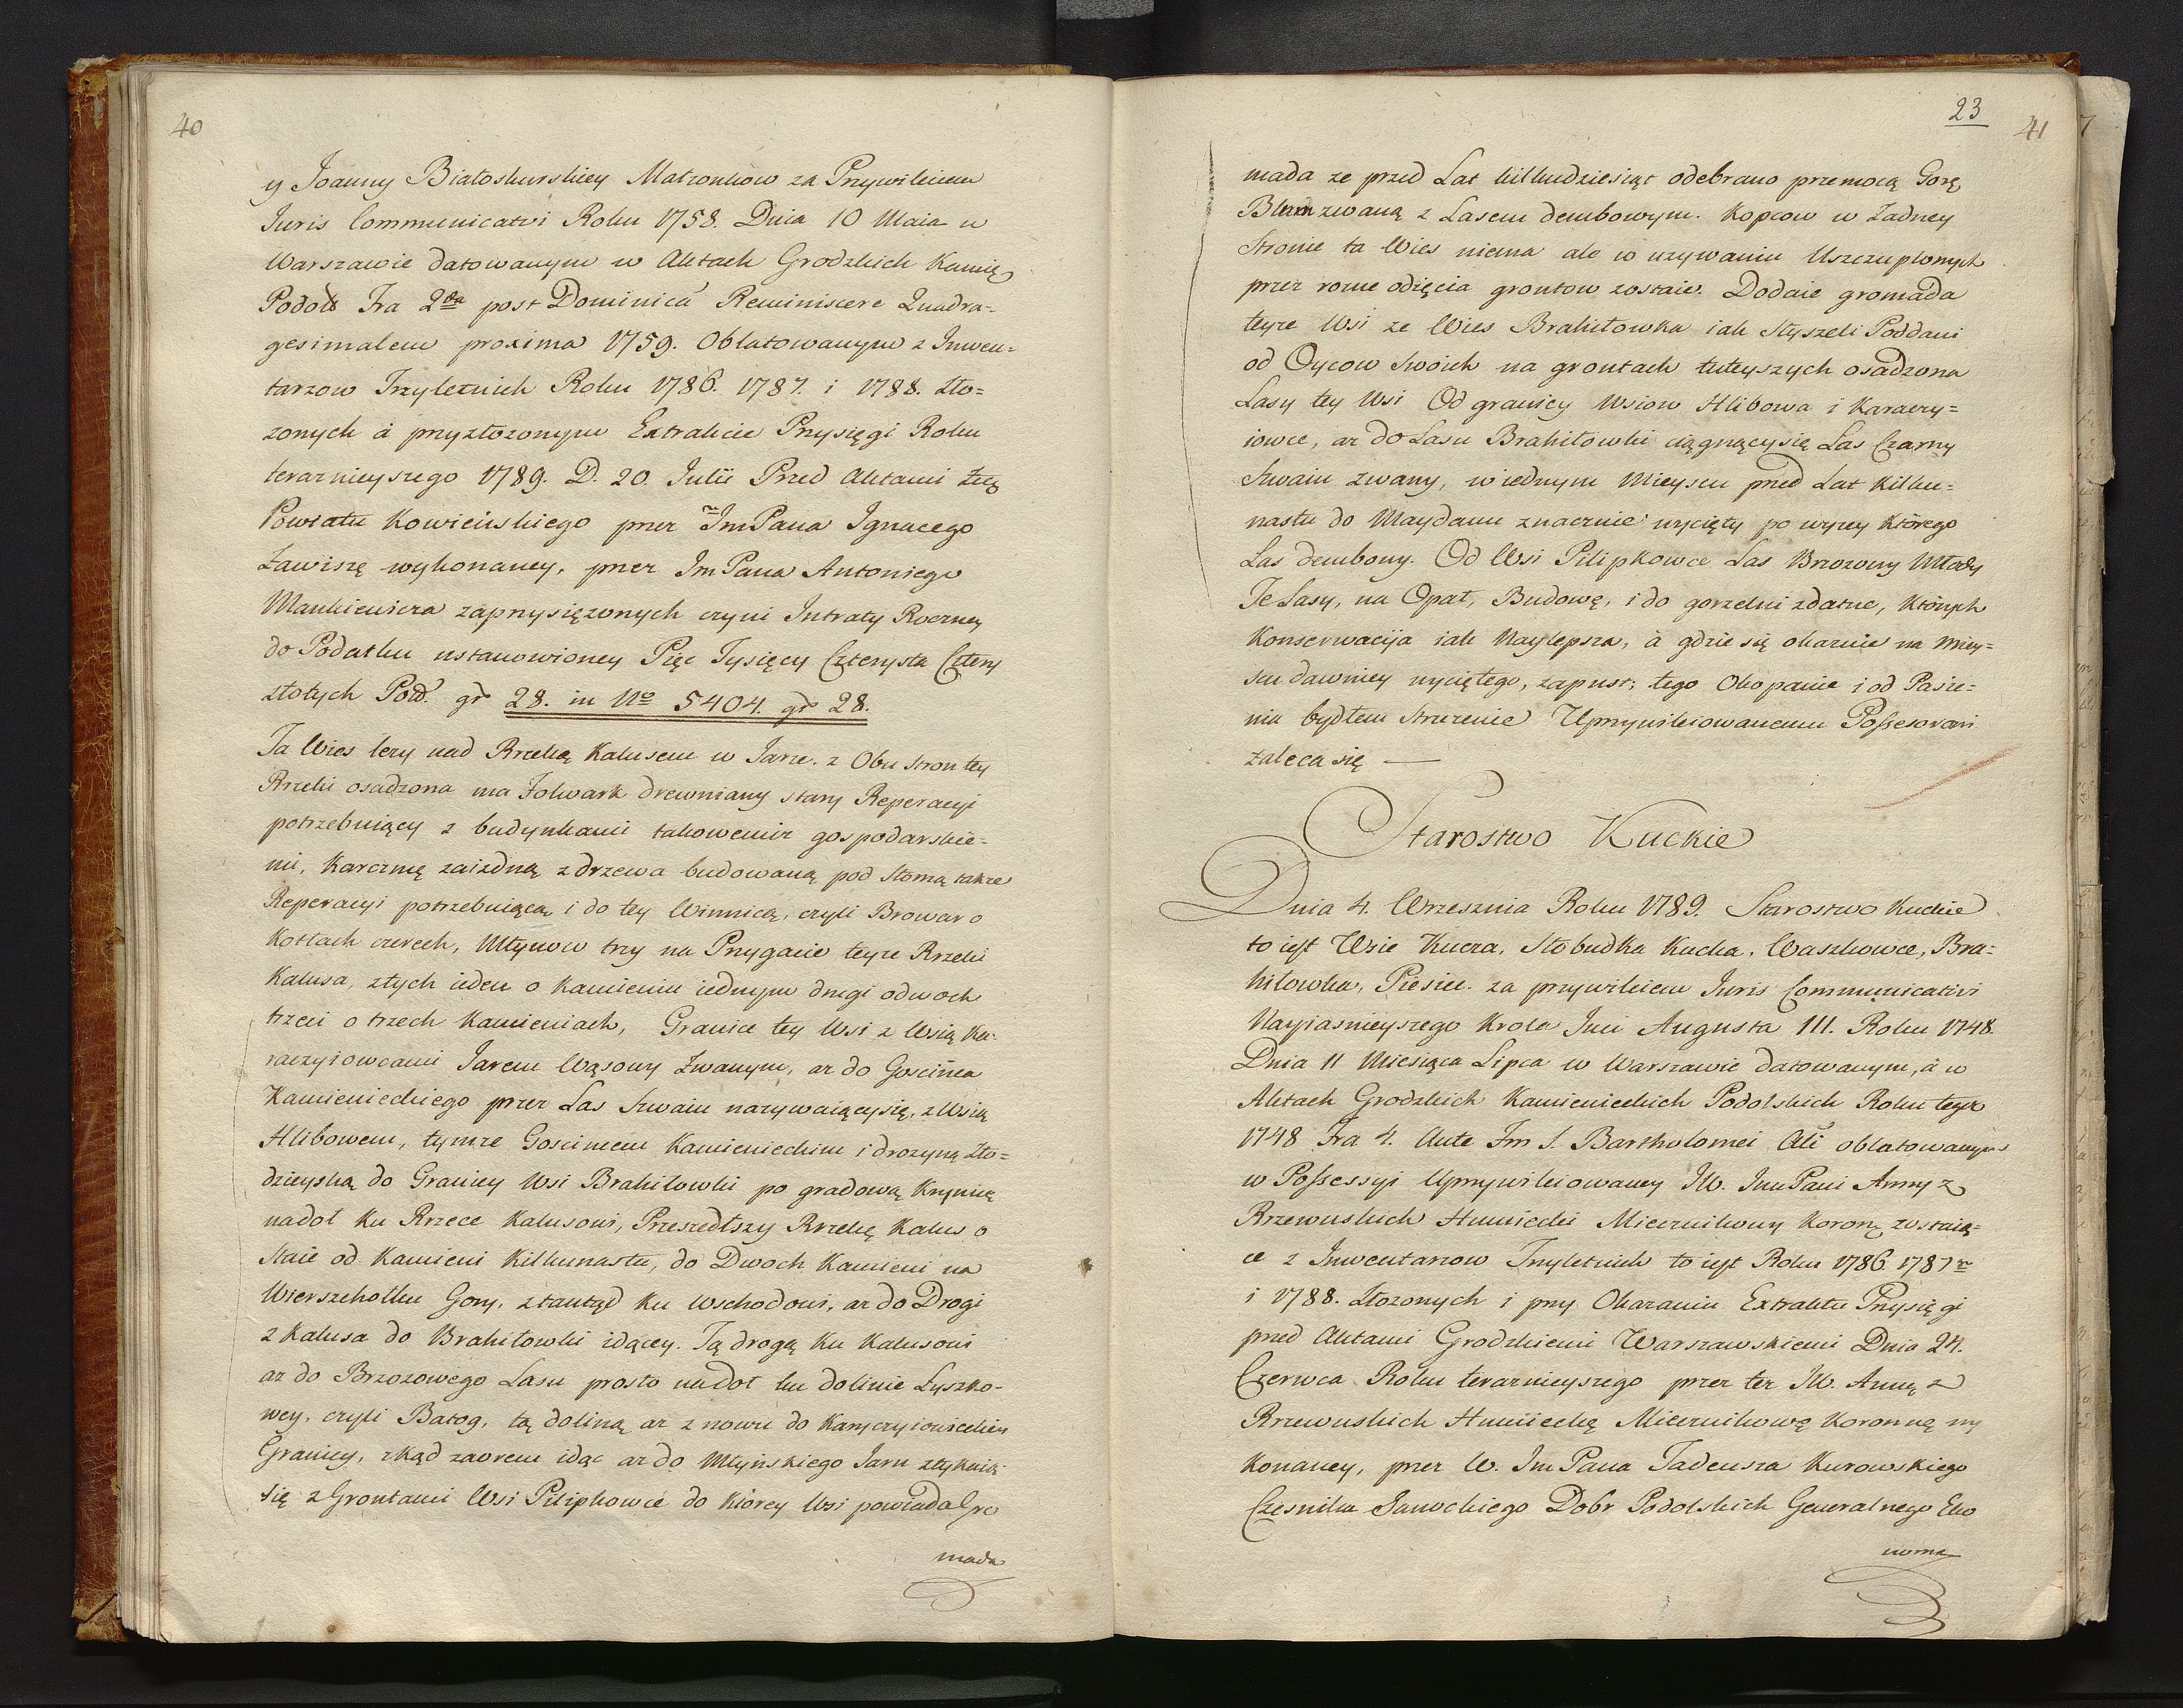 40
y Joanny Białoskurskiey Małzonkow za Przywileiem
Juris Communicativi Roku 1758. Dnia 10 Maia w
Warszawie datowanym w Aktach Grodzkich Kamię
Podols Fra 2da post Dominicã Reminiscere Quadra-
gesimalem proxima 1759. Oblatowanym z Inwen=
tarzow Trzyletnich Roku 1786. 1787. i 1788. zło=
zonych à przyłozonym Extrakcie Przysięgi Roku
terazniejszego 1789. D. 20. Julii Przed Aktami
Powiatu Kowieńskiego przez ImPana Ignacego
Zawiszę wykonaney, przez Im Pana Antoniego
Mankiewicza zaprzysięzonych czyni Intraty Roczney
do Podatku ustanowioney Pięc Tysięcy Czterysta Cztery
złotych Pols. gr 28. in No 5404. gr 28.
Ta Wies lezy nad Rzeką Kalusem w Jarze. z Obu stron tey
Rzeki osadzona ma Folwark drewniany stary Reperacyi
potrzebuiący z budynkami takowemiz gospodarskie-
mi, Karczmę zaizdną z drzewa budowaną pod słomą takze
Reperacyi potrzebuiącą i do tey Winnicą, czyli Browar o
Kotłach czerech, Młynow trzy na Przygacie teyze Rzeki
Kalusa, z tych ieden o Kamieniu iednym drugi o dwoch
trzeci o trzech Kamieniach, Granice tey Wsi z Wsią Ka-
raczyiowcami Jarem Wąsowy Zwanym, az do Goscińca
Kamienieckiego przez Las Szwaiu nazywaiący się, z Wsią
Hlibowem, tymze Goscincem Kamienieckim i drozyną zło=
dzieyską do Granicy Wsi Brahiłowki po gradową Krynicę
nadoł Ku Rzece Kalusowi, Przeszedłszy Rzekę Kalus o
staie od Kamieni Kilkunastu, do Dwoch Kamieni na
Wierszchołku Gory, ztamtąd Ku Wschodowi, az do Drogi
z Kalusa do Brahiłowki idącey. Tą drogą Ku Kalusowi
az do Brzozowego Lasu prosto nadoł ku dolinie Łyszko-
wey, czyli Batog, tą doliną az znowu do Karyczyiowieckiey
Granicy, zkąd zaorem idąc az do Młyńskiego Jaru ztykaią
się z Grontami Wsi Pilipkowce do Ktorey Wsi powiada Gro
mada
23
41
mada ze przed Lat kilkudziesiąt odebrano przemocą Gorę
zwaną z Lasem dembowym. Kopcow w Zadney
Stronie ta Wies niema ale w uzywaniu Uszczuplonych
przez rozne odięcia grontow zostaie. Dodaie gromada
teyze Wsi ze Wies Brahiłowka iak słyszeli Poddani
od Oycow swoich na grontach tuteyszych osadzona
Lasy tey Wsi Od granicy Wsiow Hlibowa i Karaczy=
iowce, az do Lasu Brahiłowki ciągnący się Las Czarny
Szwaiu zwany, w iednym Mieyscu przed Lat Kilku=
nastu do Maydanu znacznie wycięty po wyzey Ktorego
Las dembowy. Od Wsi Pilipkowce Las Brzozowy Młody
Te Lasy, na Opał, Budowę, i do gorzelni zdatne, Ktorych
Konserwacyja iak Naylepsza, à gdzie się okaznie na miey=
scu dawniey wyciętego, zapust; tego Okopanie i od Pasie=
nia bydłem strzezenie Uprzywileiowanemu Possesorowi
zaleca się —
Starostwo Kuckie
Dnia 4. Wrzesznia Roku 1789. Starostwo Kuckie
to iest Wsie Kucza, Słobudka Kucka, Waszkowce, Bra=
hiłowka, Piesiec. za przywileiem Juris Communicativi
Nayiasnieyszego Krola Jmci Augusta III. Roku 1748.
Dnia 11 Miesiąca Lipca w Warszawie datowanym, à w
Aktach Grodzkich Kamienieckich Podolskich Roku tegoz
1748 Fra 4. Ante Fm S. Bartholomei Ali oblatowanym
w Possessyi Uprzywileiowaney JW. JmPani Anny z
Rzewuskich Humiecki Miecznikowy Koronę zostaią=
ce z Inwentarzow Trzyletnich to iest Roku 1786. 1787
i 1788. złozonych i przy Okazaniu Extraktu Przysięgi
przed Aktami Grodzkiemi Warszawskiemi Dnia 24.
Czerwca Roku terazniejszego przez tez JW. Annę z
Rzewuskich Humiecką Miecznikowę Koronną wy
Konaney, przez W. Im Pana Tadeusza Kurowskiego
Czesnika Sanockiego Dobr Podolskich Generalnego Eko
noma